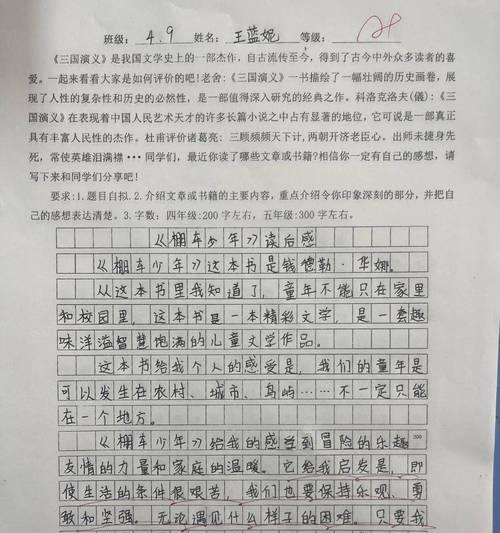 班级: 4.9 姓名: 王蓝妮 等级:
《三国演义》是我国文学史上的一部杰作，自古流传至今，得到了古今中外众多读者的喜
爱。一起来看看大家是如何评价的吧！老舍:《三国演义》一书描绘了一幅壮阔的历史画卷，展
现了人性的复杂性和历史的必然性，是一部值得深入研究的经典之作。科洛克洛夫(俄):《三
国演义》在表现着中国人民艺术天才的许多长篇小说之中占有显著的地位，它可说是一部真正
具有丰富人民性的杰作。杜甫评价诸葛亮: 三顾频频天下计，两朝开济老臣心。出师未捷身先
死，常使英雄泪满襟···同学们，最近你读了哪些文章或书籍?相信你一定有自己的感想，请
写下来和同学们分享吧！
要求:1.题目自拟.2.介绍文章或书籍的主要内容，重点介绍令你印象深刻的部分，并把自
己的感想表达清楚。3.字数: 四年级:200字左右，五年级:300字左右。
《棚车少年》读后感
《棚车少年》这本书是钱德勒·华娜。
从这本书里我知道了，童年不能只在家里
和校园里，这本书是一本精彩文学，是一套趣
味洋溢智慧饱满的儿童文学作品。
这本书给我个人的感受是，我们的童年是
可以发生在农村、城市、岛屿……不一定只能
在一个地方。
《棚车少年》给我的感受到冒险的乐趣
200
友情的力量和家庭的温暖。它给我启发是，即
使生活的条件很艰苦，我们也要保持乐观、勇
敢和坚强。无论遇见什么样子的困难。只要我